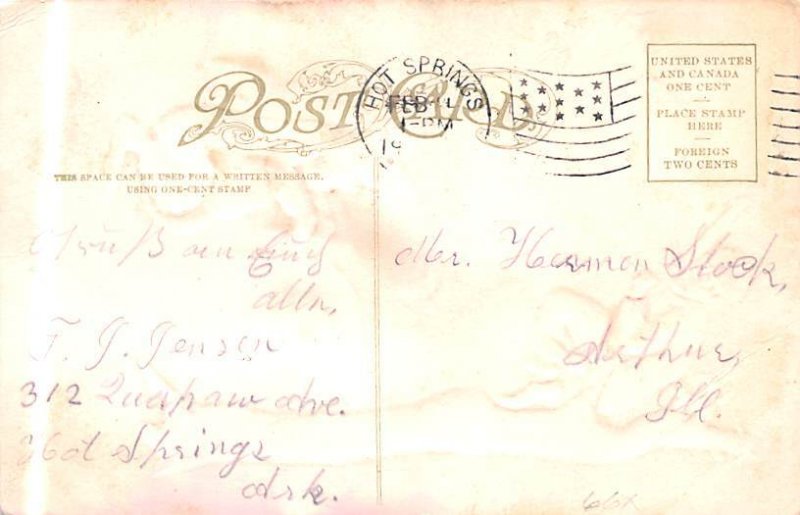 POST CARD
HOT SPRINGS
FEB
1-PM
19
UNITED STATES
AND CANADA
ONE CENT
PLACE STAMP
HERE
FOREIGN
TWO CENTS
THIS SPACE CAN BE USED FOR A WRITTEN MESSAGE,
USING ONE-CENT STAMP
Gruß an Euch
alln,
T. J. Jensen
312 Quapaw Ave.
Hot Springs
Ark.
Mr. Herman Stock,
Arthur,
Ill.